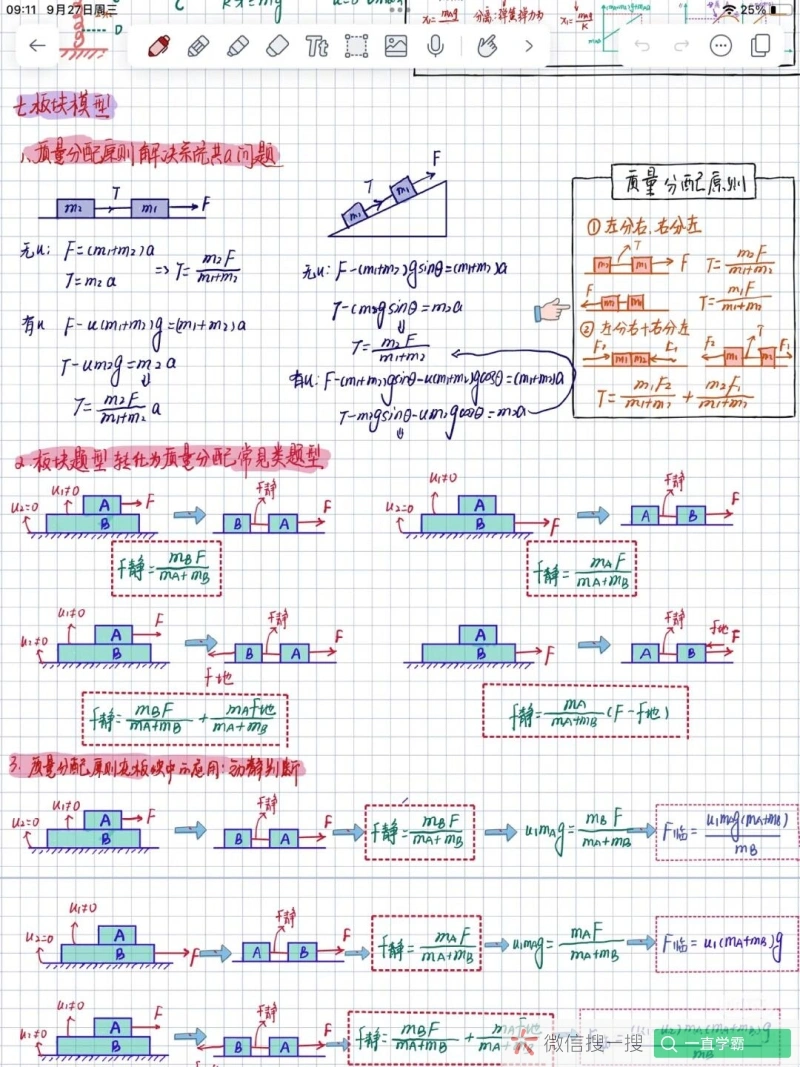 09:11 9月27日周三
25%
D
七.板块模型
1.质量分配原则解决系统共a问题
m2 T m1 F
无u: F=(m1+m2)a
T=m2a
=> T=m2F/(m1+m2)
有u F-u(m1+m2)g=(m1+m2)a
T-um2g=m2a
T=m2F/(m1+m2) a
m1 T m1 F
无u: F-(m1+m2)gsinθ=(m1+m2)a
T-(m2gsinθ=m2a
T=m2F/(m1+m2)
有u: F-(m1+m2)gsinθ-u(m1+m2)gcosθ=(m1+m2)a
T-m2gsinθ-um2gcosθ=m2a
质量分配原则
①左分右,右分左
m2 T m1 F T=m2F/(m1+m2)
F T=m1F/(m1+m2)
②左分右+右分左
F2 m1 m2 F1 F2 m1 T m2 F1
T=m1F2/(m1+m2)+m2F1/(m1+m2)
2.板块题型转化为质量分配常见类题型
u2=0 u1≠0 A B F B f静 A F
f静=mBF/(mA+mB)
u2=0 u1≠0 A B F A f静 B F
f静=mAF/(mA+mB)
u2≠0 u1≠0 A B F f地 B f静 A F
f静=mBF/(mA+mB)+mAf地/(mA+mB)
A B F A f静 B f地 F
f静=mA/(mA+mB)(F-f地)
3.质量分配原则在板块中的应用:动静判断
u2=0 u1≠0 A B F B f静 A F f静=mBF/(mA+mB) u1mAg=mBF/(mA+mB) F临=u1mAg(mA+mB)/mB
u2=0 u1≠0 A B F A f静 B F f静=mAF/(mA+mB) u1mAg=mAF/(mA+mB) F临=u1(mA+mB)g
u2≠0 u1≠0 A B F B f静 A F f静=mBF/(mA+mB)+
微信搜一搜 一直学霸